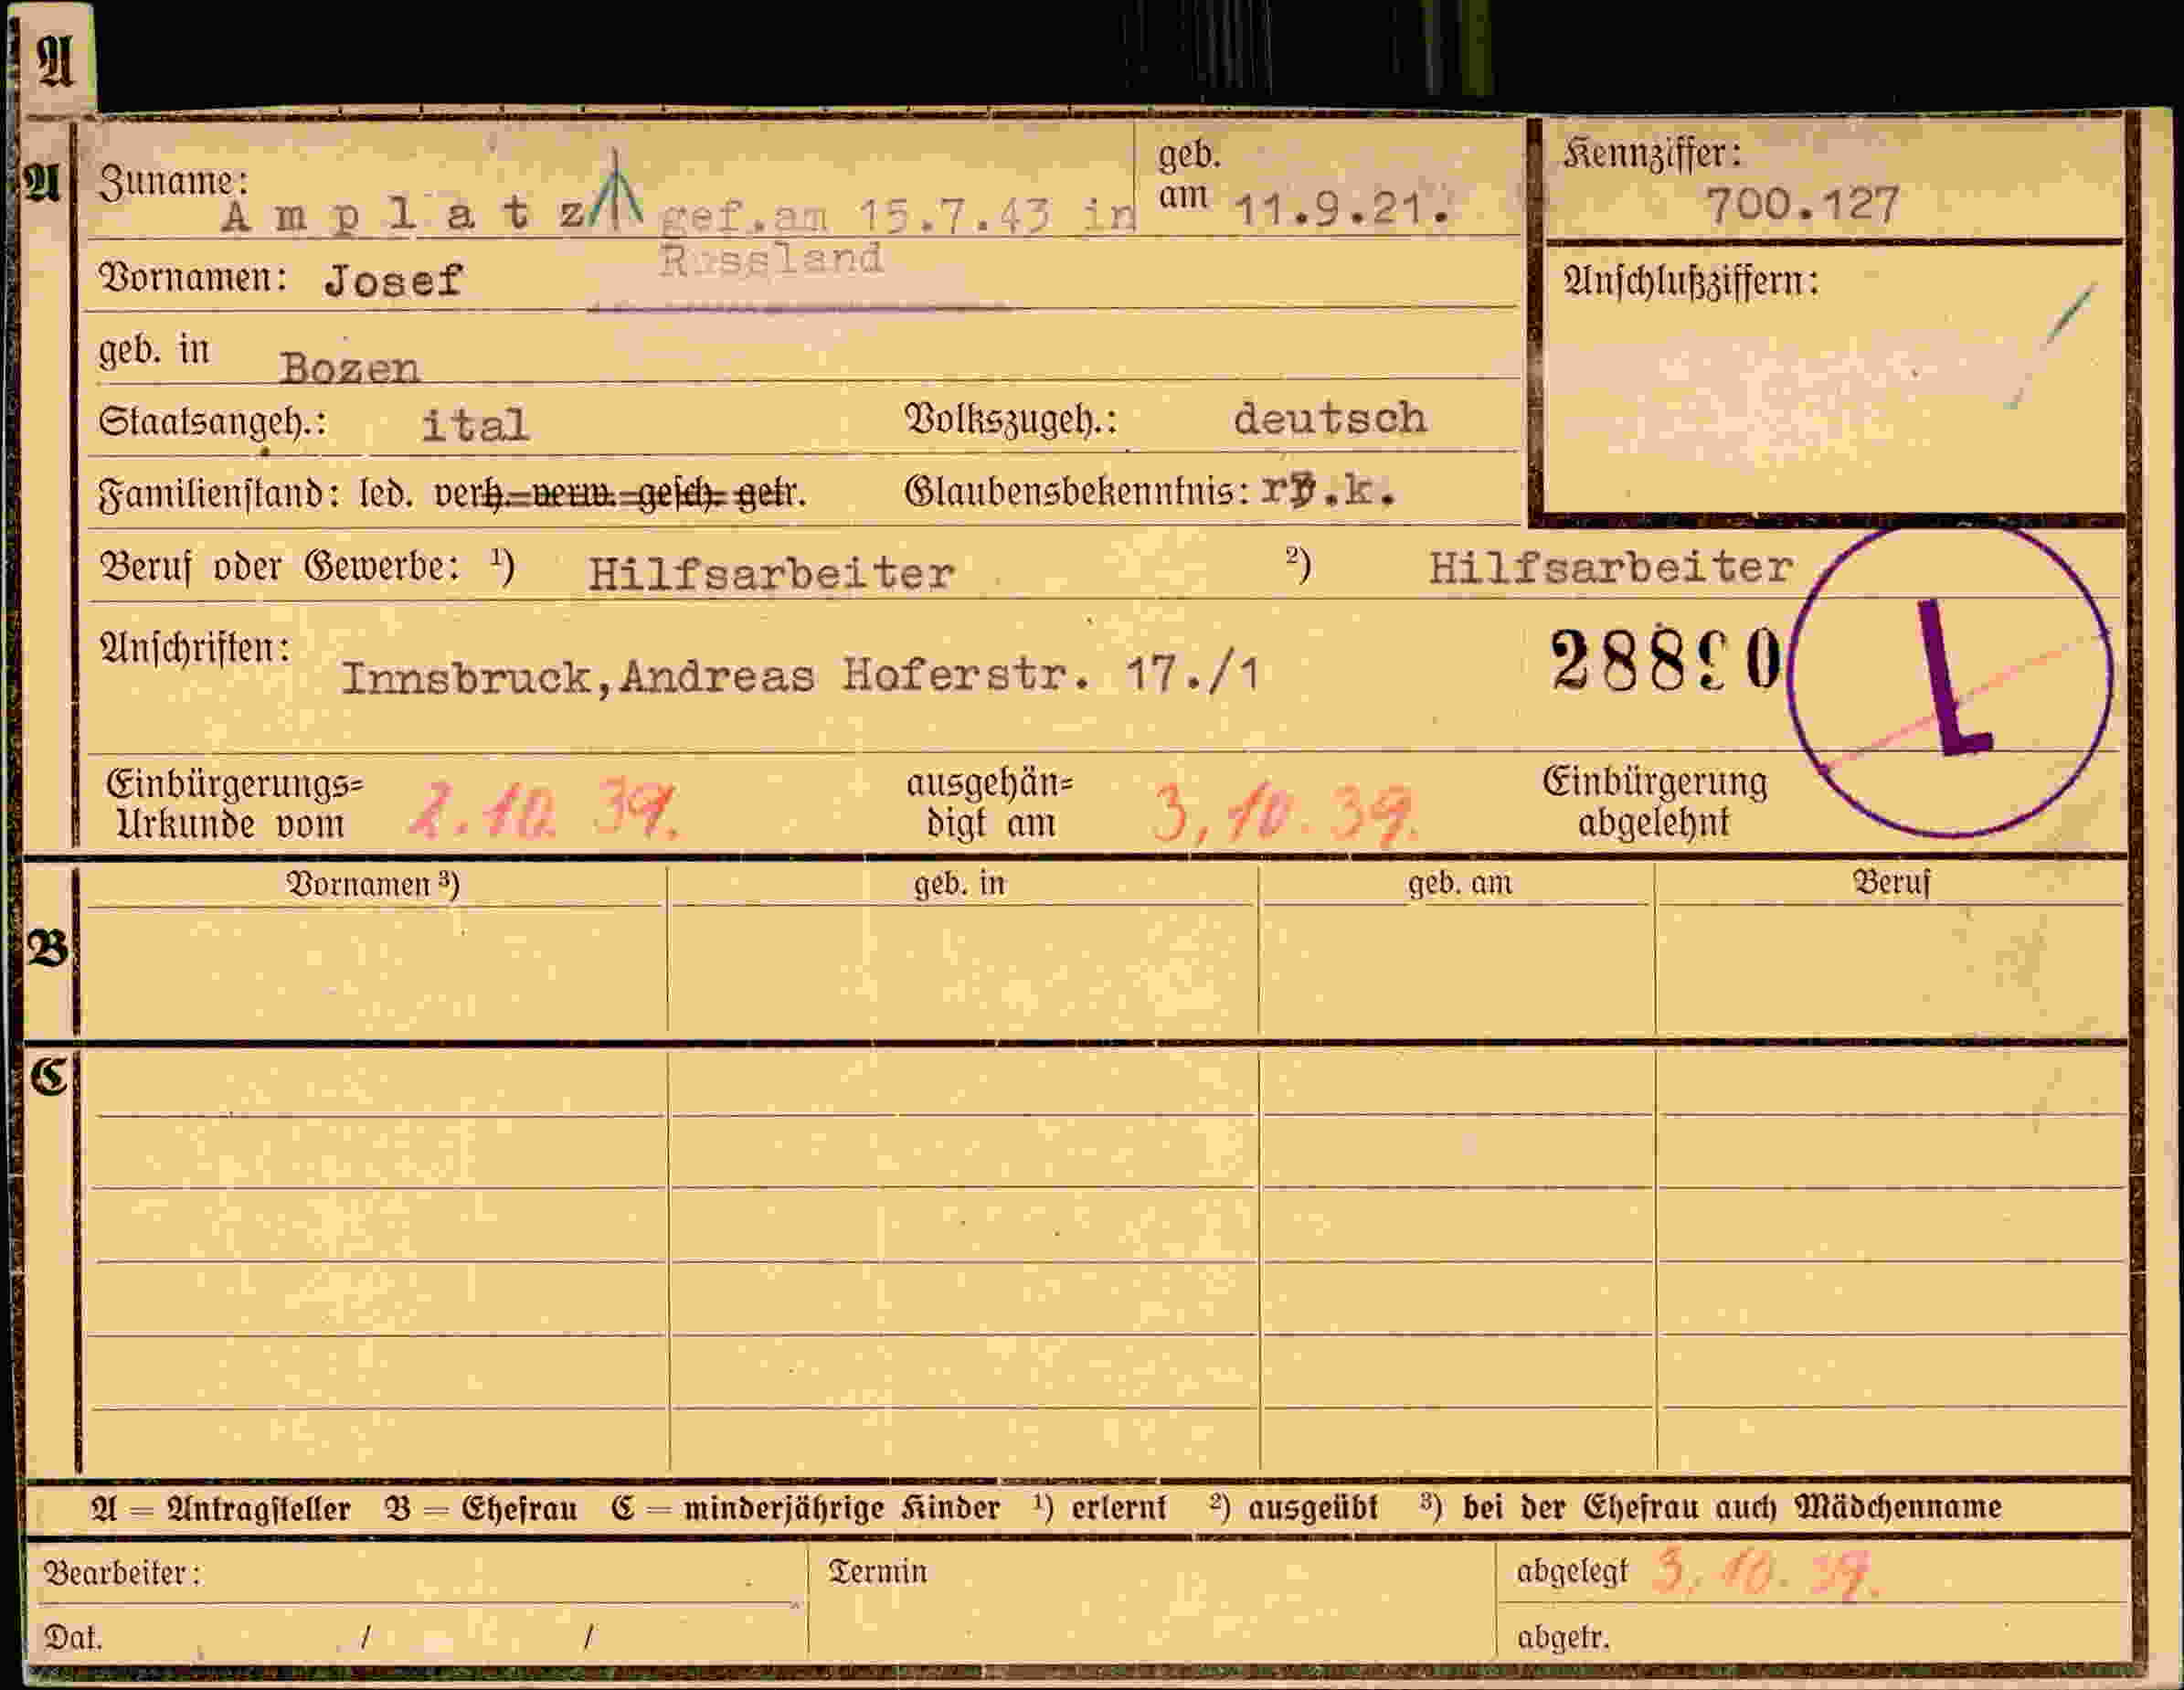 A
A Zuname: A m p l a t z gef.am 15.7.43 in geb. am 11.9.21. Kennziffer: 700.127
Russland
Vornamen: Josef Anschlußziffern:
geb. in Bozen
Staatsangeh.: ital Volkszugeh.: deutsch
Familienstand: led. verh. verw. gesch. getr. Glaubensbekenntnis: r.k.
Beruf oder Gewerbe: ¹) Hilfsarbeiter ²) Hilfsarbeiter
Anschriften: Innsbruck,Andreas Hoferstr. 17./1 28890 L
Einbürgerungs= Urkunde vom 2.10.39. ausgehän= digt am 3.10.39. Einbürgerung abgelehnt
Vornamen ³) geb. in geb. am Beruf
B
C
A = Antragsteller B = Ehefrau C = minderjährige Kinder ¹) erlernt ²) ausgeübt ³) bei der Ehefrau auch Mädchenname
Bearbeiter: Termin abgelegt 3.10.39.
Dat. / / abgetr.